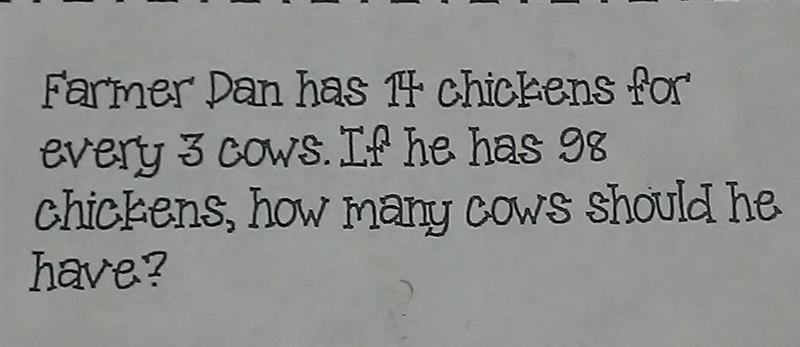 Farmer Dan has 14 chickens for
every 3 cows. If he has 98
chickens, how many cows should he
have?